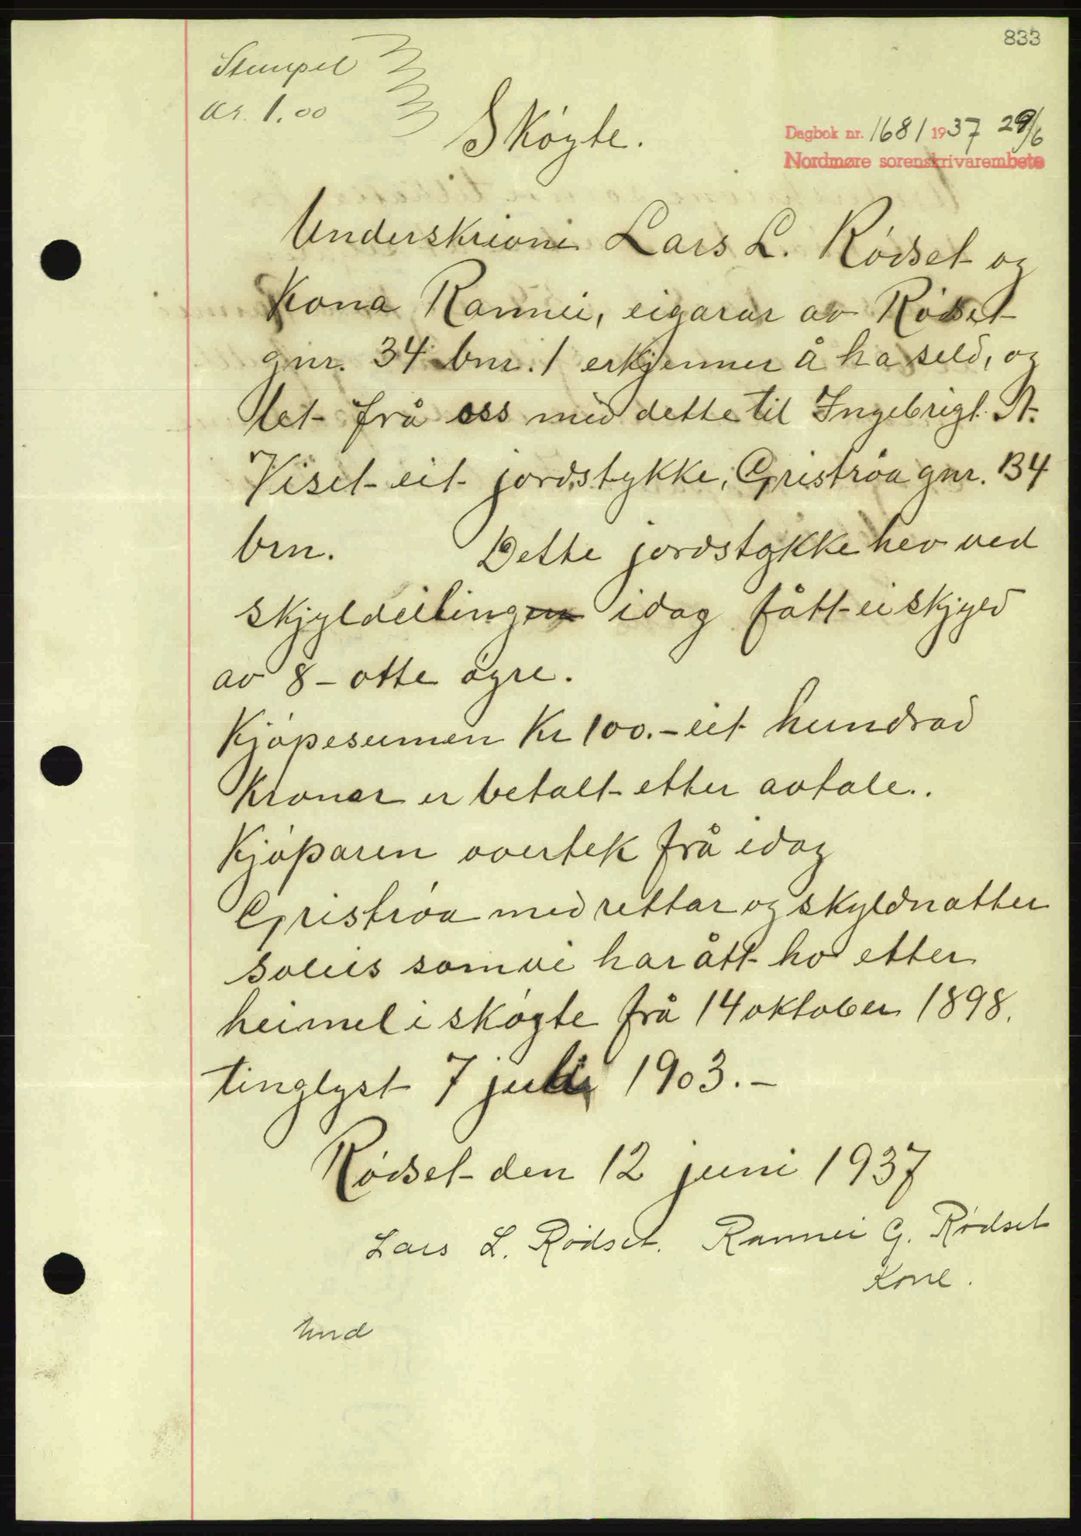 833
Stempel
kr. 1.00
Skøyte.
Dagbok nr. 1681 1937 29/6
Nordmøre sorenskrivarembete
Underskrivne Lars L. Rødset og
Kona Rannei, eigarar av Rødset
gnr. 34 bnr. 1 erkjenner å ha seld, og
let frå oss med dette til Ingebrigt A.
Viset eit jordstykke, Gristrøa gnr. 134
bnr. Dette jordstykke hev ved
skjyldeilingen idag fått ei skjyld
av 8 - otte øyre.
Kjøpesumen Kr 100.- eit hundrad
Kronar er betalt etter avtale.
Kjøparen overtek frå idag
Gristrøa med rettar og skyldnatter
soleis som vi har ått ho etter
heimel i skøyte frå 14 oktober 1898.
tinglyst 7 juli 1903.-
Rødset den 12 juni 1937
Lars L. Rødset. Rannei G. Rødset
Kone.